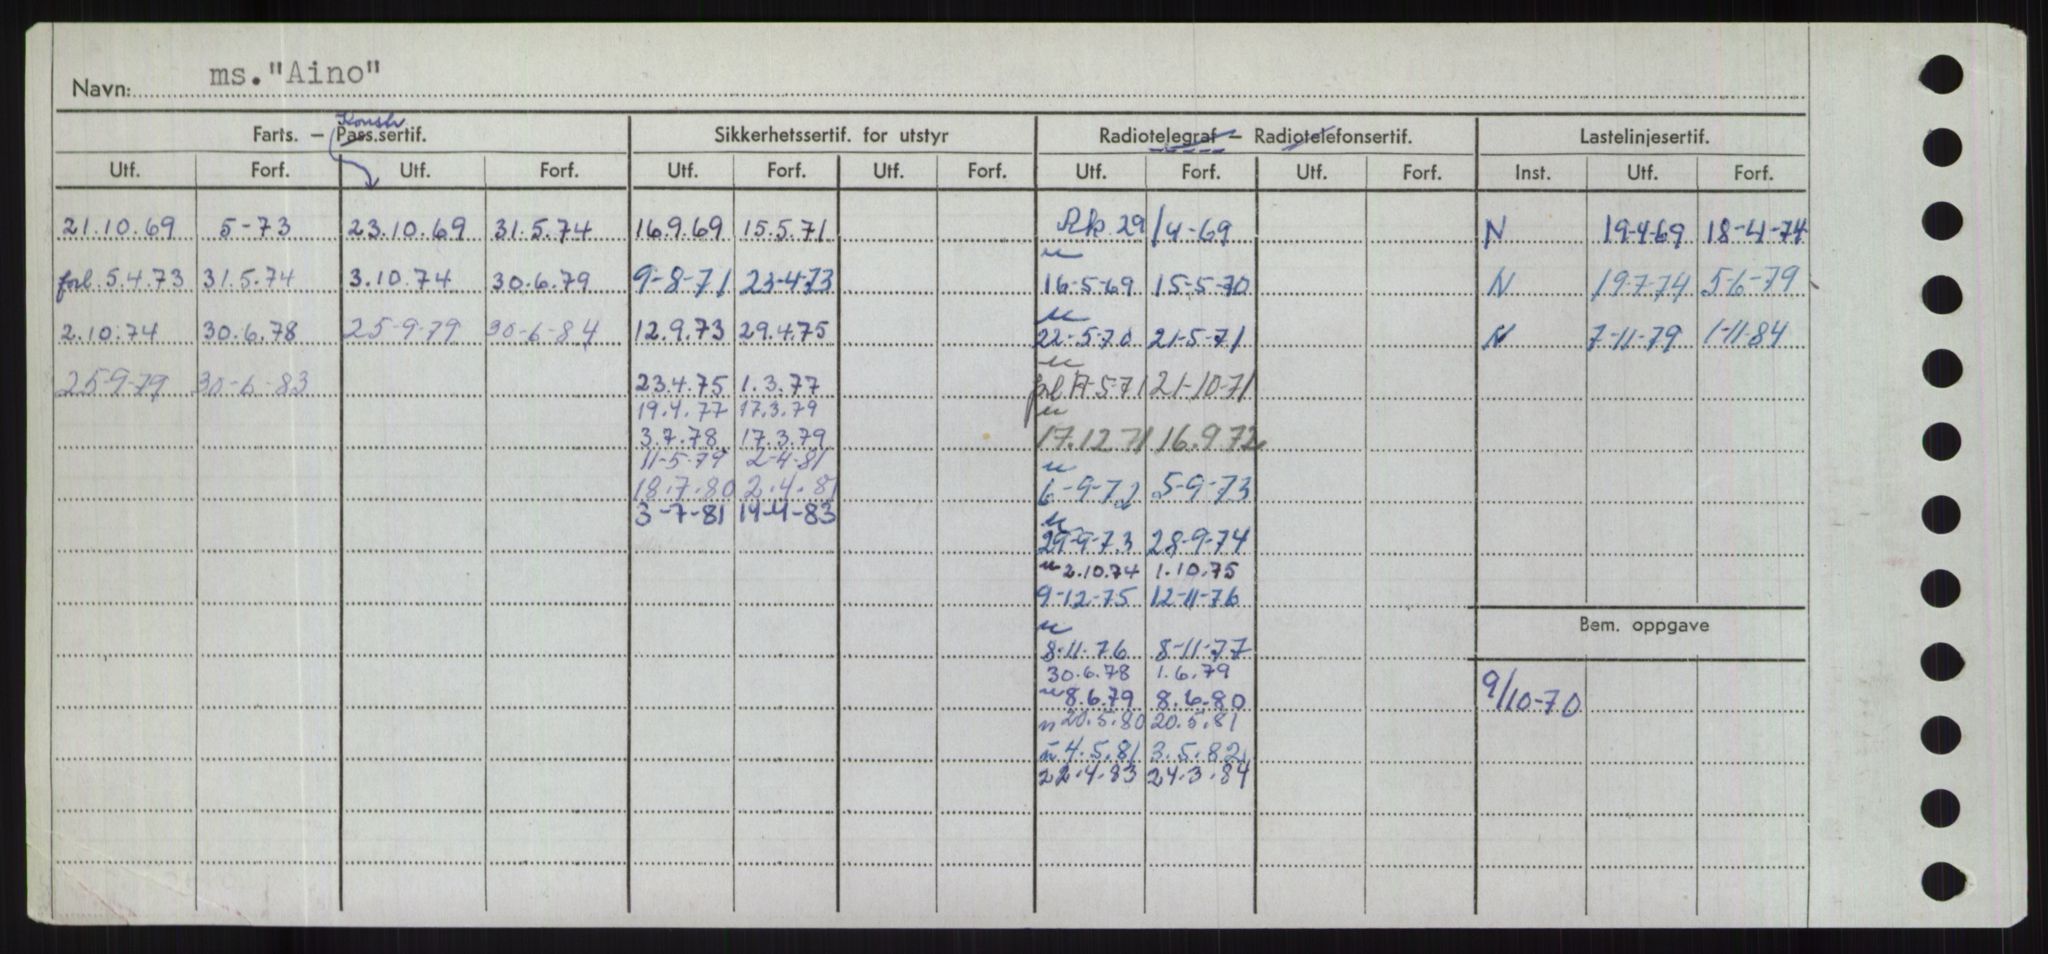 Navn: ms."Aino"
Konstr
Farts. — Pass.sertif. Sikkerhetssertif. for utstyr Radiotelegraf — Radiotelefonsertif. Lastelinjesertif.
Utf. Forf. Utf. Forf. Utf. Forf. Utf. Forf. Utf. Forf. Utf. Forf. Inst. Utf. Forf.
21.10.69 5-73 23.10.69 31.5.74 16.9.69 15.5.71 Rk 29/4-69 N 19-4-69 18-4-74
u
forl. 5.4.73 31.5.74 3.10.74 30.6.79 9-8-71 23-4-73 16-5-69 15-5-70 N 19-7-74 5-6-79
u
2.10.74 30.6.78 25-9-79 30-6-84 12.9.73 29.4.75 22-5-70 21-5-71 N 7-11-79 1-11-84
u
25-9-79 30-6-83 23.4.75 1.3.77 17-5-71 21-10-71
19.4.77 17.3.79 u
3.7.78 17.3.79 17.12.71 16.9.72
11-5-79 2-4-81 u
18.7.80 2.4.81 6-9-72 5-9-73
3-7-81 19-4-83 u
29-9-73 28-9-74
u 2.10.74 1.10.75
9-12-75 12-11-76
u Bem. oppgave
8.11.76 8-11-77
30.6.78 1.6.79 9/10-70
u 8.6.79 8.6.80
u 20.5.80 20.5.81
u 4.5.81 3.5.82
22.4.83 24.3.84